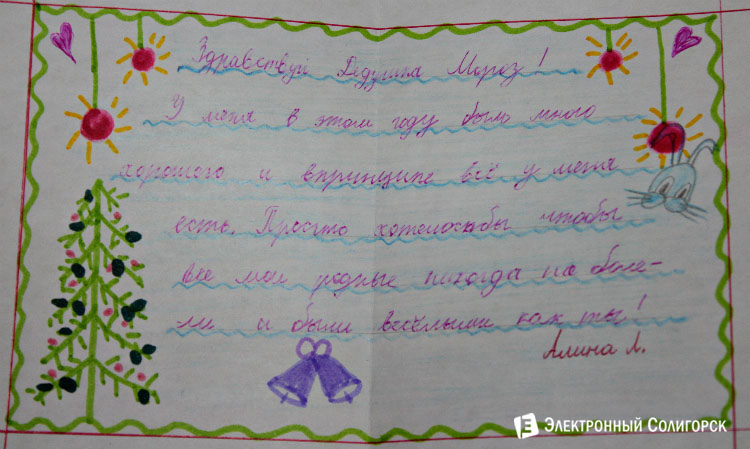 Здравствуй Дедушка Мороз!
У меня в этом году было много
хорошего и впринципе всё у меня
есть. Просто хотелосьбы чтобы
все мои родные никогда не боле-
ли и были весёлыми как ты!
Алина Л.
Электронный Солигорск